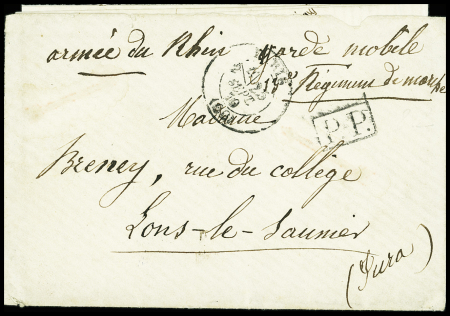 armée du Rhin Garde mobile
Régiment de marche
P.P.
Madame
Breney, rue du collège
Lons-le-Saunier
(Jura)